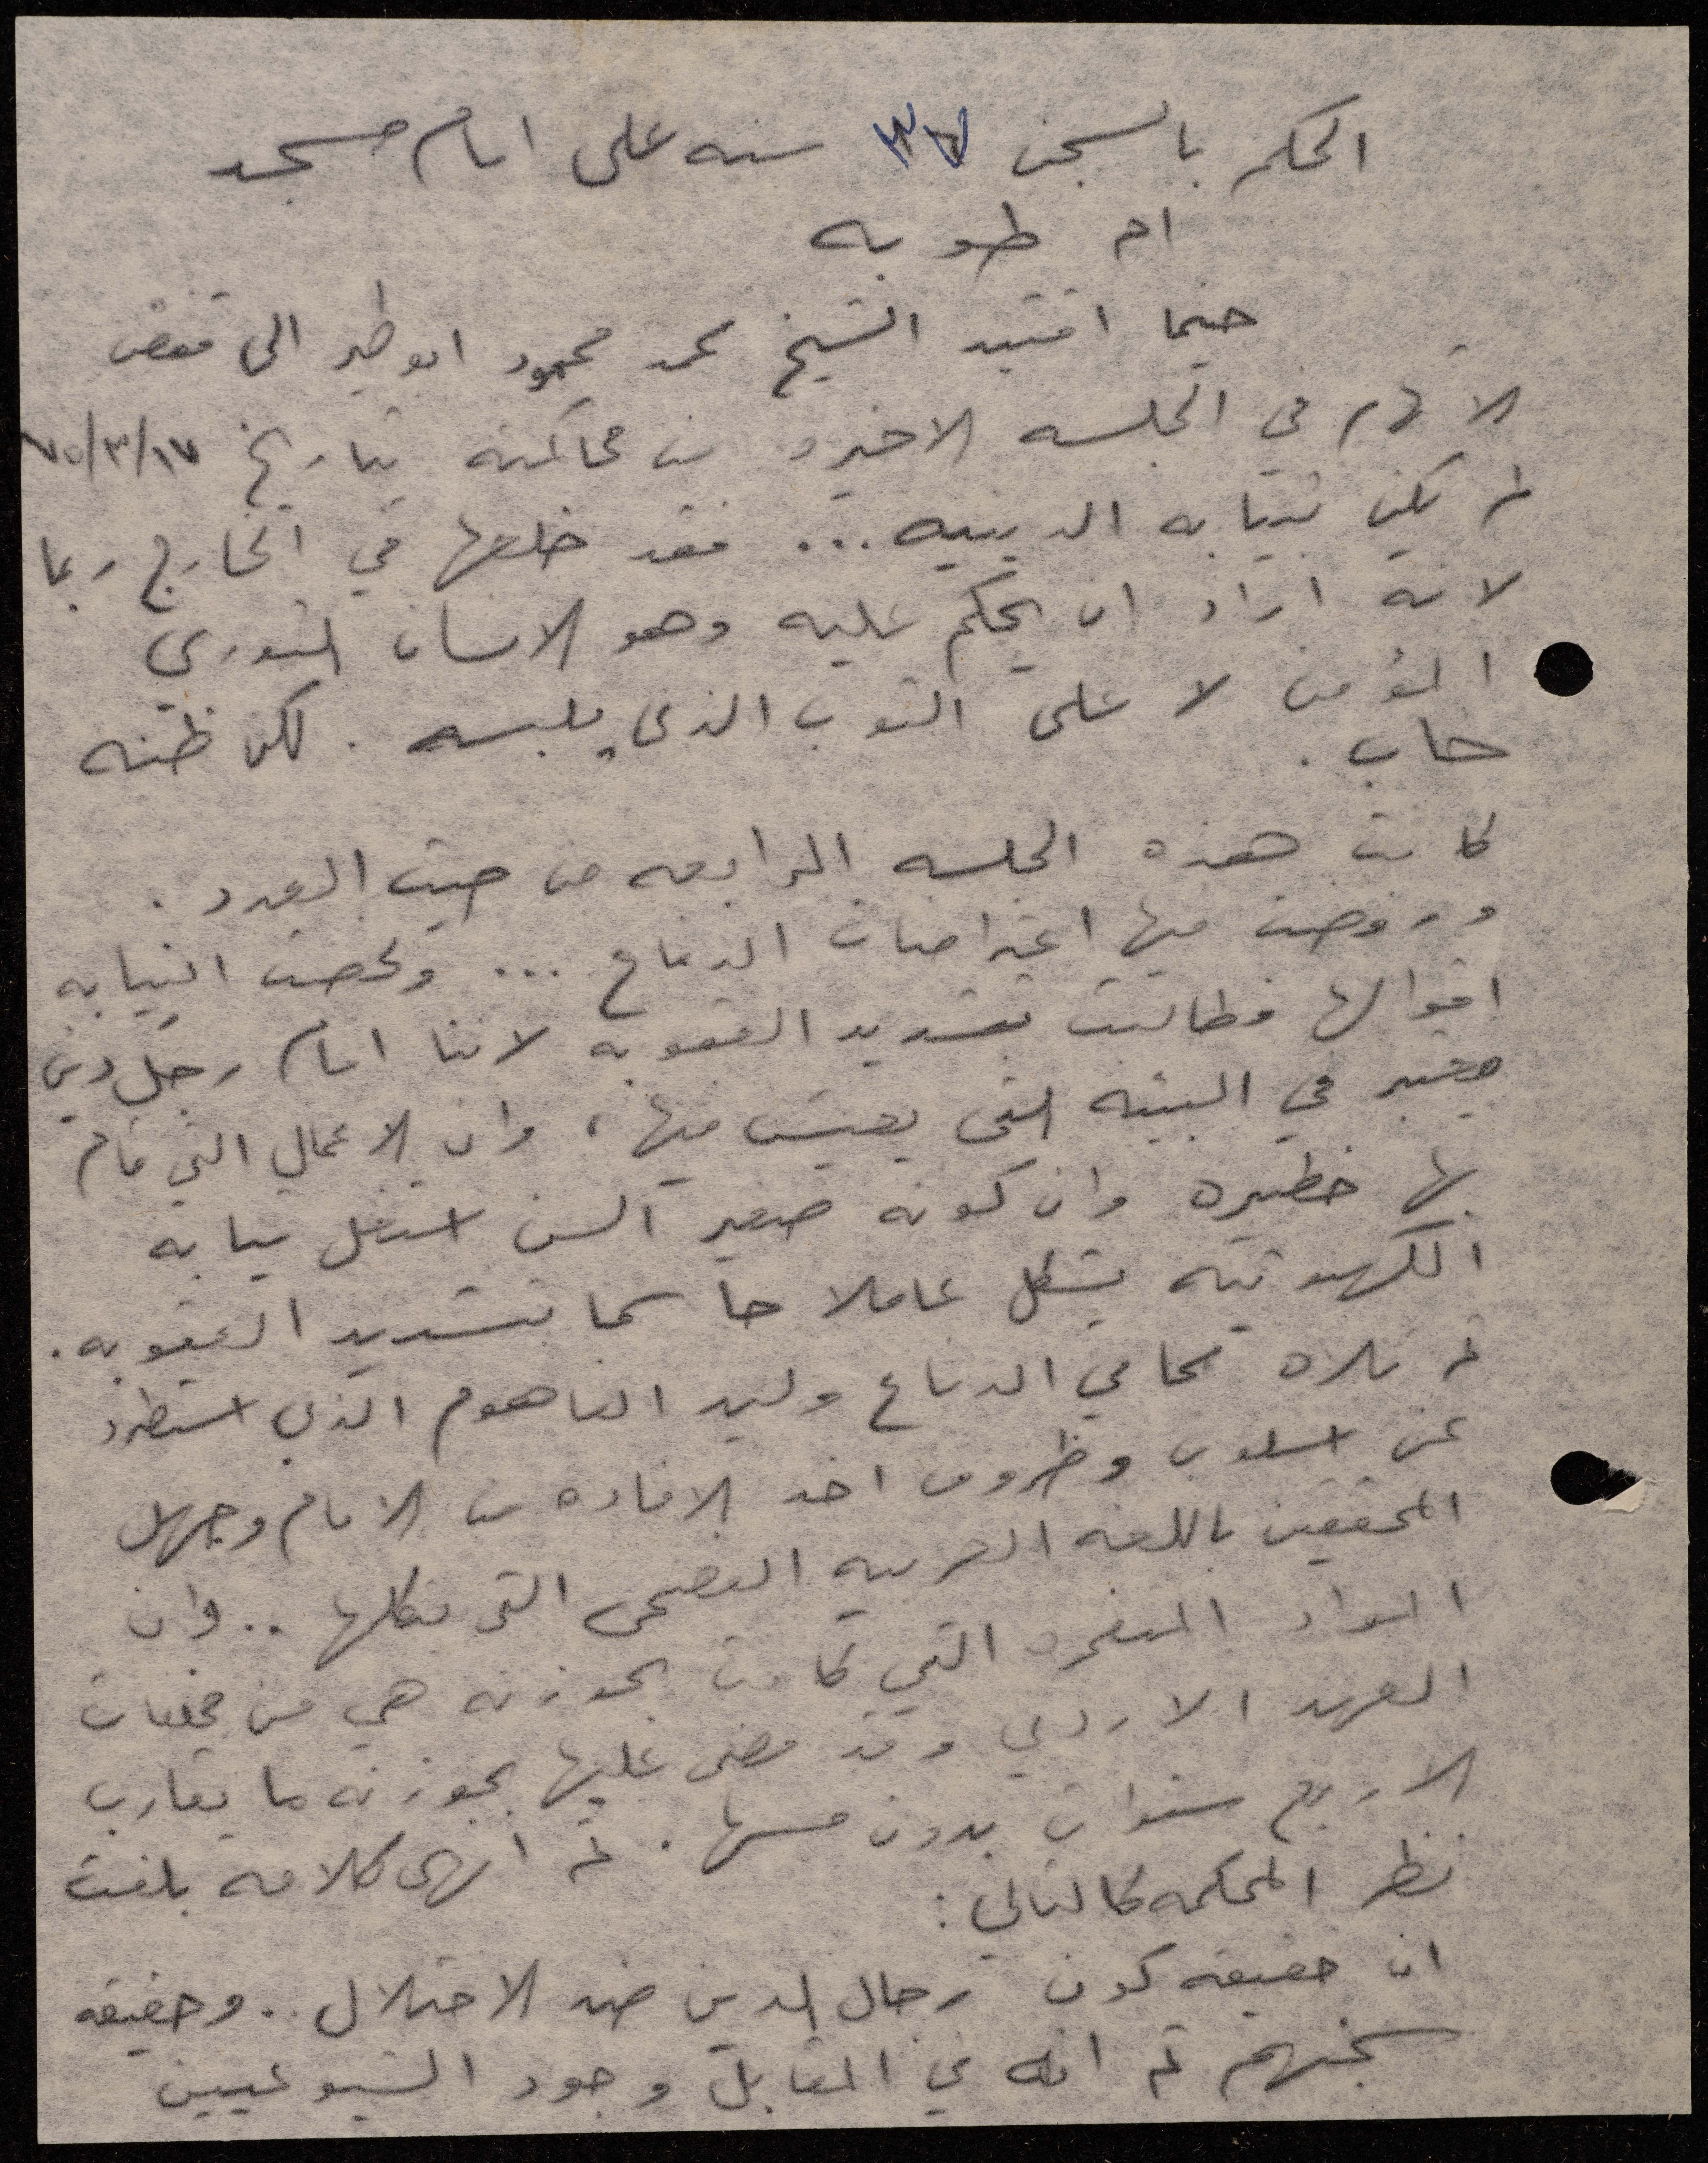 الحكم بالسجن سنه على امام مسجد
ام طوبه
حينما اقتيد الشيخ محمد محمود ابو طير الى قفص
الاتهام في الجلسه الاخيره من محاكمته بتاريخ ٧٥/٣/١٧
لم يكن بثيابه الدينيه ... فقد خلعها في الخارج ربما
لانه اراد ان يحكم عليه وهو الانسان الثوري
المؤمن لا على الثوب الذي يلبسه . لكن ظنه
خاب .
كانت هذه الجلسه الرابعه من حيث العدد .
ورفضت فيها اعتراضات الدفاع ... ولخصت النيابه
اقوالها فطالبت بتشديد العقوبه لاننا امام رجل دين
معتبر في البيئه التي يعيش فيها ، وان الاعمال التي قام
بها خطيره وان كونه صغير السن استغل ثيابه
الكهنوتيه يشكل عاملا حاسما بتشديد العقوبه .
ثم تلاه محامي الدفاع وليد الفاهوم الذي استطرد
عن اسلوب وظروف اخذ الافاده من الامام وجهل
المحققين باللغه العربيه الفصحى التي يتكلمها .. وان
المواد المتفجره التي كانت بحوزته هي من مخلفات
العهد الاردني وقد مضى عليها بحوزته ما يقارب
الاربع سنوات بدون مسها . ثم انهى كلامه بلفت
نظر المحكمه كالتالي :
ان حقيقه كون رجال الدين ضد الاحتلال .. وحقيقه
سجنهم ثم انه في المقابل وجود الشيوعيين